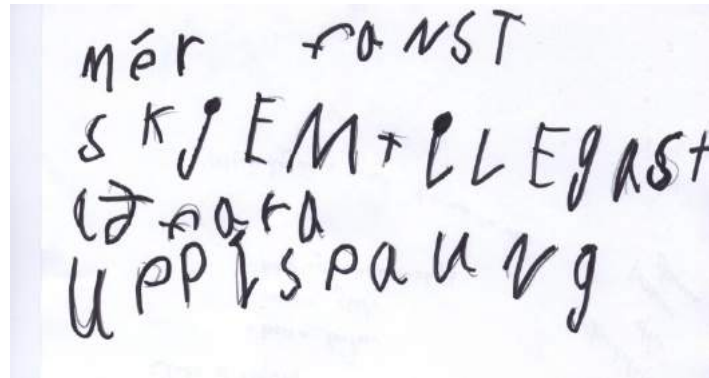 mér fanST
SKjEMtiLEgASt
að fara
UPPÍSpaUNg